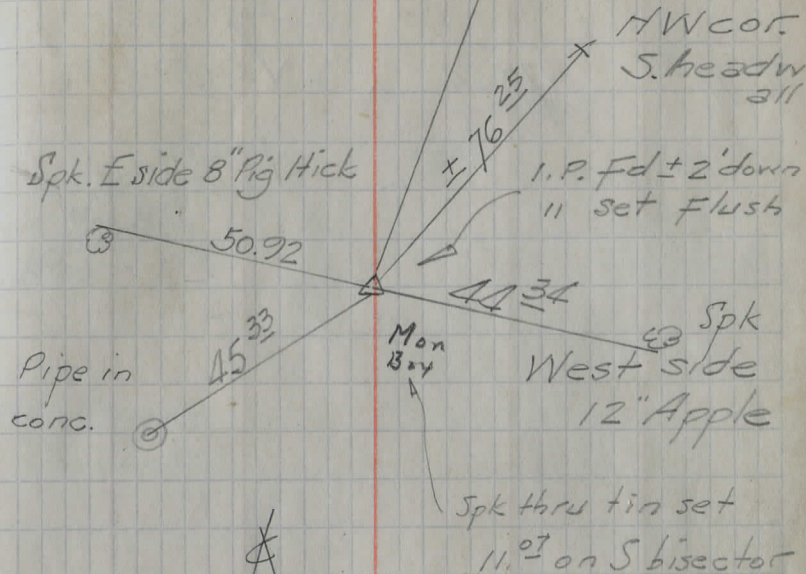 NW cor.
S. headw
all
± 76 25
Spk. E side 8" Pig Hick
I.P. Fd ± 2' down
" set Flush
50.92
44 34
45 33
Mon
Box
Spk
West side
12" Apple
Pipe in
conc.
Spk thru tin set
11.07 on S bisector